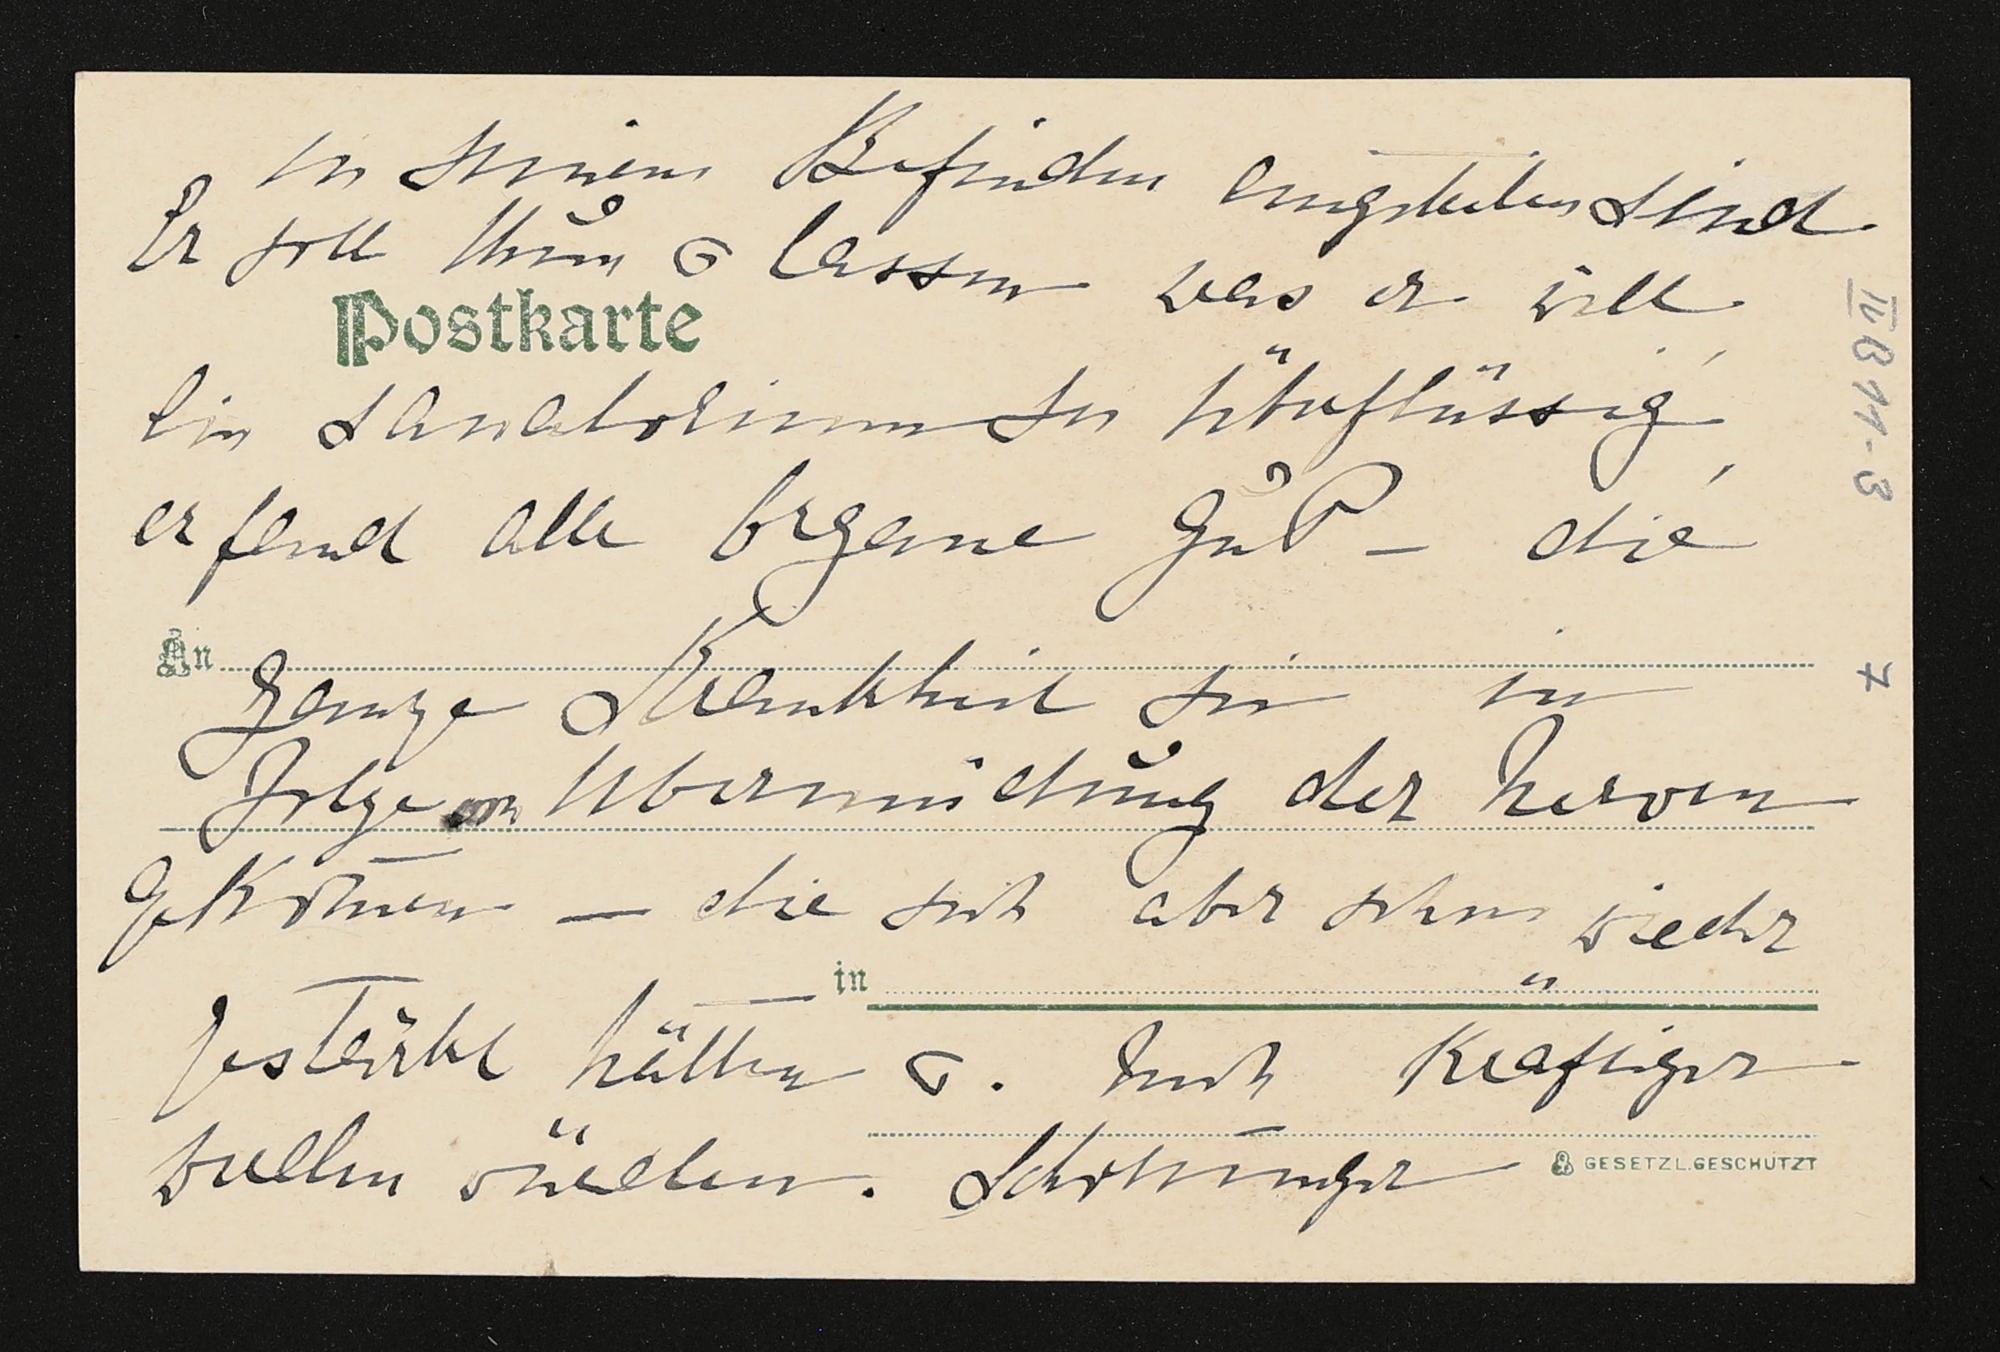 in seinem Befinden eingetreten sind
Er soll thun u lassen was er will
Postkarte
Ein Sanatorium sei überflüssig,
er fand alle Organe gut – die
An
ganze Krankheit sei in
Folge von Übermüdung der Nerven
gekom̄en – die sich aber schon wieder
in
gestärkt hätten u. noch kräftiger
werden würden. Schweninger
GESETZL. GESCHÜTZT
IV B 11-3
7